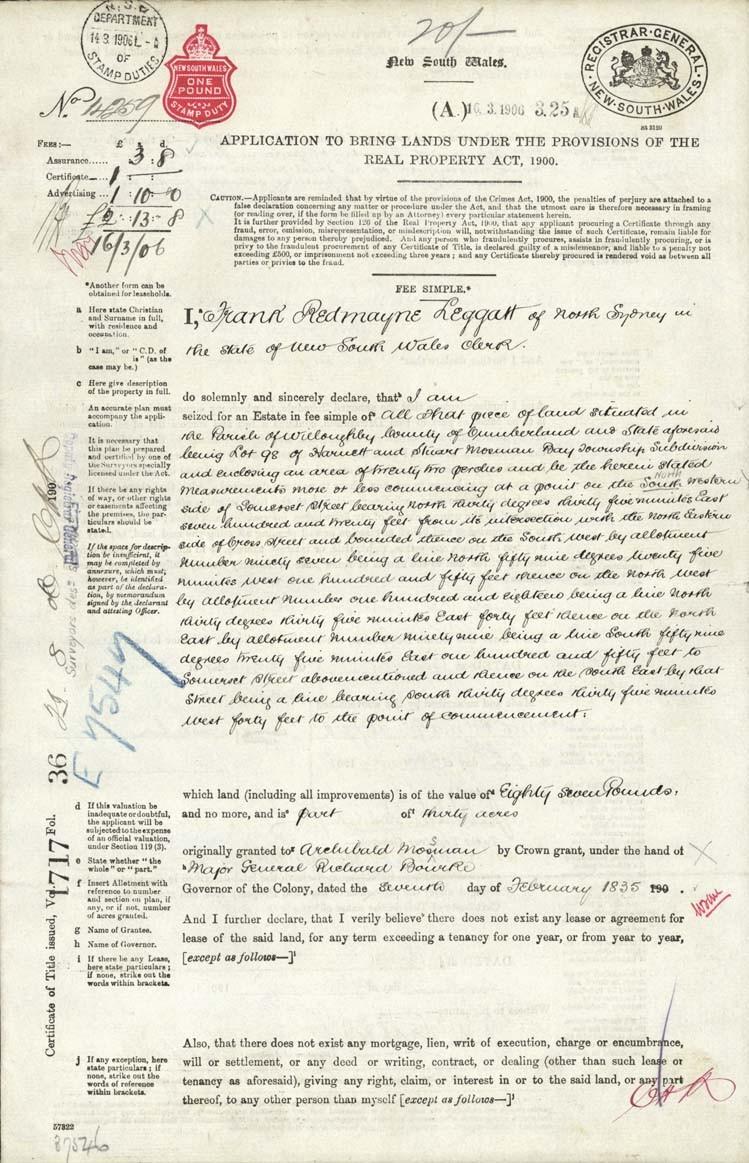 N.S.W.
DEPARTMENT
14 3. 1906
OF
STAMP DUTIES
NEW SOUTH WALES
ONE
POUND
STAMP DUTY
20/-
New South Wales.
REGISTRAR-GENERAL
NEW-SOUTH-WALES
(A.) 16. 3. 1906 3.25
No. 4259
APPLICATION TO BRING LANDS UNDER THE PROVISIONS OF THE
REAL PROPERTY ACT, 1900.
FEES:— £ s. d.
Assurance...... 3 : 8
Certificate 1 :
Advertising ... 1 : 10 : 0
£2 : 13 : 8
16/3/06
CAUTION.—Applicants are reminded that by virtue of the provisions of the Crimes Act, 1900, the penalties of perjury are attached to a
false declaration concerning any matter or procedure under the Act, and that the utmost care is therefore necessary in framing
(or reading over, if the form be filled up by an Attorney) every particular statement herein.
It is further provided by Section 126 of the Real Property Act, 1900, that any applicant procuring a Certificate through any
fraud, error, omission, misrepresentation, or misdescription will, notwithstanding the issue of such Certificate, remain liable for
damages to any person thereby prejudiced. And any person who fraudulently procures, assists in fraudulently procuring, or is
privy to the fraudulent procurement of any Certificate of Title, is declared guilty of a misdemeanor, and liable to a penalty not
exceeding £500, or imprisonment not exceeding three years; and any Certificate thereby procured is rendered void as between all
parties or privies to the fraud.
FEE SIMPLE.*
*Another form can be
obtained for leaseholds.
a Here state Christian
and Surname in full,
with residence and
occupation.
b "I am," or "C.D. of
is" (as the
case may be.)
c Here give description
of the property in full.
An accurate plan must
accompany the appli-
cation.
It is necessary that
this plan be prepared
and certified by one of
the Surveyors specially
licensed under the Act.
If there be any rights
of way, or other rights
or easements affecting
the premises, the par-
ticulars should be
stated.
If the space for descrip-
tion be insufficient, it
may be completed by
annexure, which must,
however, be identified
as part of the declara-
tion, by memorandum
signed by the declarant
and attesting Officer.
I,a Frank Redmayne Leggatt of North Sydney in
the State of New South Wales Clerk.
do solemnly and sincerely declare, thatb I am
seized for an Estate in fee simple ofc All that piece of land situated in
the Parish of Willoughby County of Cumberland and State aforesaid
being Lot 98 of Harnett and Stuart Mosman Bay Township Subdivision
and enclosing an area of twenty two perches and be the herein stated
Measurements more or less commencing at a point on the South North Western
side of Somerset Street bearing North thirty degrees thirty five minutes East
seven hundred and twenty feet from its intersection with the North Eastern
side of Cross Street and bounded thence on the South West by allotment
Number ninety seven being a line North fifty nine degrees twenty five
minutes West one hundred and fifty feet thence on the North West
by allotment Number one hundred and eighteen being a line North
thirty degrees thirty five minutes East forty feet thence on the North
East by allotment Number Ninety nine being a line South fifty nine
degrees twenty five minutes East one hundred and fifty feet to
Somerset Street abovementioned and thence on the South East by that
Street being a line bearing South thirty degrees thirty five minutes
West forty feet to the point of commencement:
E 7547
Certificate of Title issued, Vol. 1717 Fol. 36
190
d If this valuation be
inadequate or doubtful,
the applicant will be
subjected to the expense
of an official valuation,
under Section 119 (3).
e State whether "the
whole" or "part."
f Insert Allotment with
reference to number
and section on plan, if
any, or if not, number
of acres granted.
g Name of Grantee.
h Name of Governor.
i If there be any Lease,
here state particulars;
if none, strike out the
words within brackets.
which land (including all improvements) is of the value ofd Eighty seven Pounds:
and no more, and ise part of thirty acres
originally granted tog Archibald Mosman by Crown grant, under the hand of
h Major General Richard Bourke
Governor of the Colony, dated the seventh day of February 1835 190 .
And I further declare, that I verily believe there does not exist any lease or agreement for
lease of the said land, for any term exceeding a tenancy for one year, or from year to year,
[except as follows—]i
j If any exception, here
state particulars; if
none, strike out the
words of reference
within brackets.
Also, that there does not exist any mortgage, lien, writ of execution, charge or encumbrance,
will or settlement, or any deed or writing, contract, or dealing (other than such lease or
tenancy as aforesaid), giving any right, claim, or interest in or to the said land, or any part
thereof, to any other person than myself [except as follows—]j
57322
87546